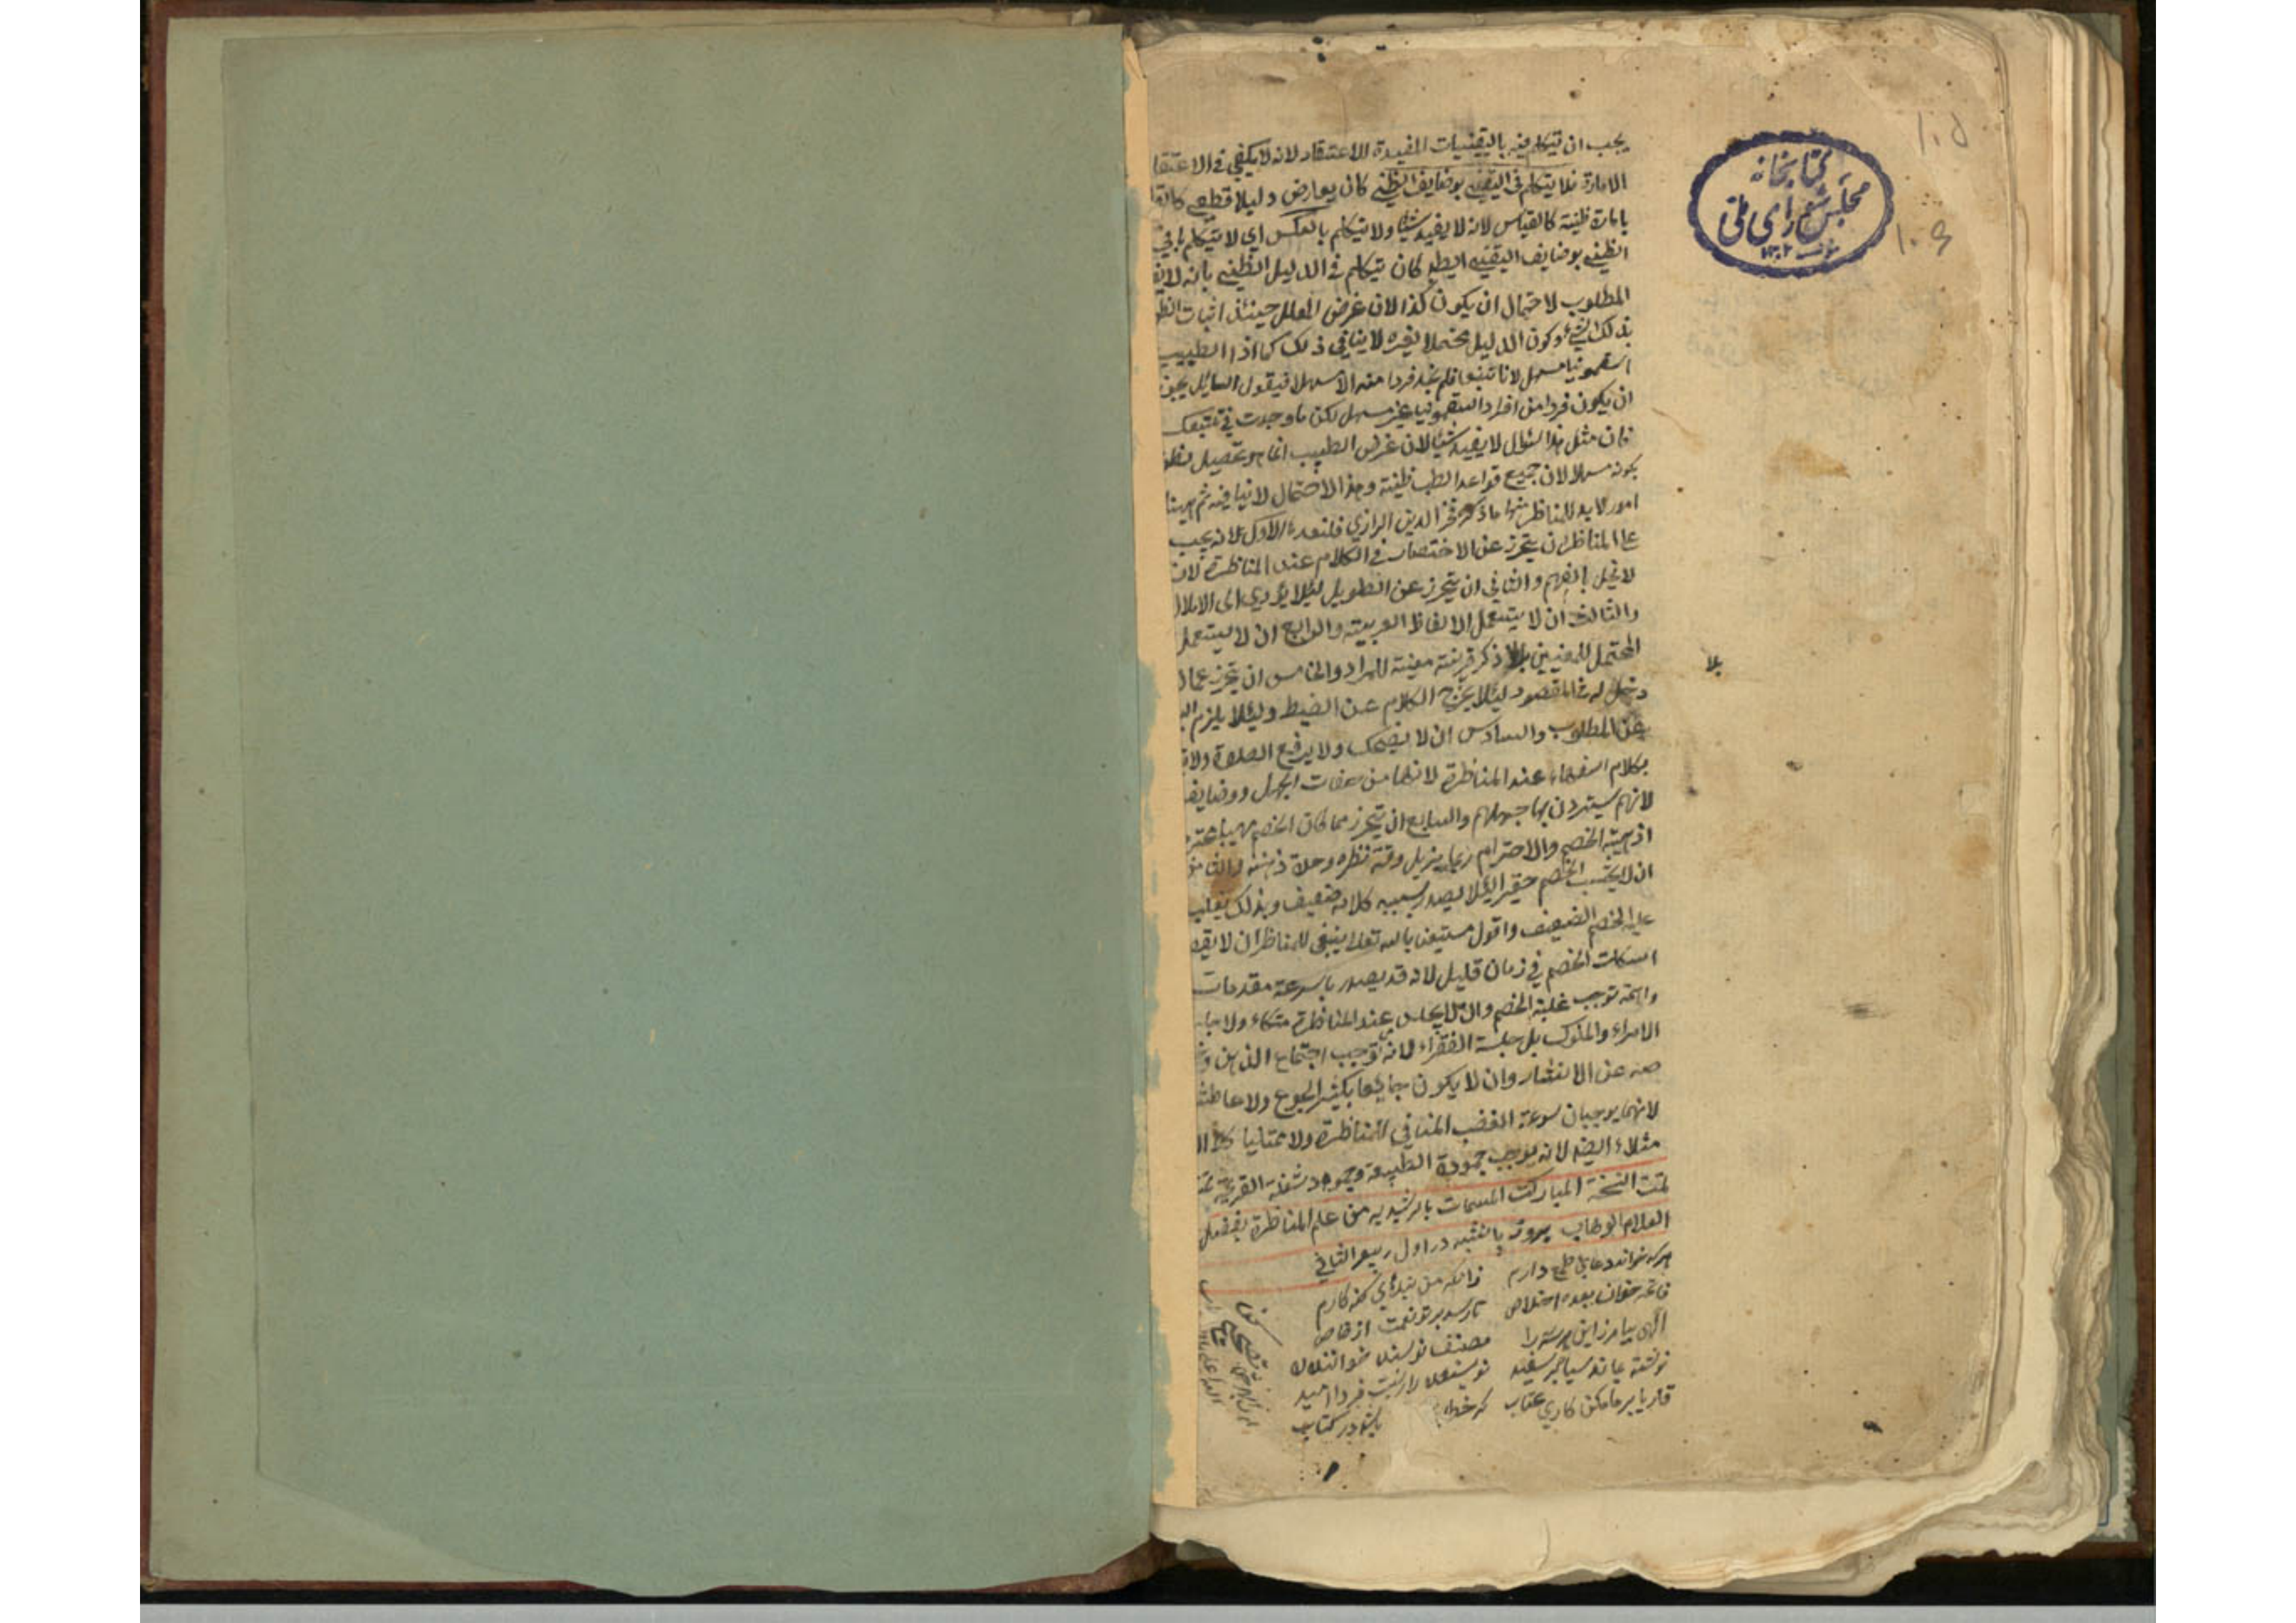 يجب ان يتكلم فيه باليقينيات المفيدة للاعتقاد لانه لا يكفي في الاعتقا
الامارة فلا يتكلم في اليقيني بوضايف الظني كان يعارض دليلا قطعي كالقا
بامارة ظنية كالقياس لانه لا يفيد شيئا ولا يتكلم بالعكس اي لا يتكلم
الظني بوضايف اليقيني ايضا كان يتكلم في الدليل الظني بانه لا
المطلوب لاحتمال ان يكون كذا لان غرض المعلل حينئذ اثبات الظن
بذلك الشيء وكون الدليل محتملا لغيره لا ينافي ذلك كما اذا الطبيب
السقمونيا مسهل لانا تتبعنا فلم نجد فردا منه الا مسهلا فيقول السائل يجوز
ان يكون فردا من افراد السقمونيا غير مسهل لكن ما وجدت في تتبعك
فان مثل هذا السؤال لا يفيد شيئا لان غرض الطبيب انما هو تحصيل
بكونه مسهلا لان جميع قواعد الطب ظنية وهذا الاحتمال لا ينافيه ثم ههنا
امور لابد للمناظر منها ما ذكر فخر الدين الرازي فلنعده الاول انه يجب
على المناظر ان يتحرز عن الاختصار في الكلام عند المناظرة لان
لا يخل بالفهم والثاني ان يتحرز عن التطويل لئلا يؤدي الى الاملال
والثالث ان لا يستعمل الالفاظ الغريبة والرابع ان لا يستعمل
المحتمل للمعنيين بلا ذكر قرينة معينة للمراد والخامس ان يتحرز عما لا
بلا
دخل له في المقصود لئلا يخرج الكلام عن الضبط ولئلا يلزم
عن المطلوب والسادس ان لا يضحك ولا يرفع الصوت ولا
بكلام السفهاء عند المناظرة لانها من صفات الجهل ووضايف
لانهم يسترون بها جهلهم والسابع ان يتحرز مما كان الخصم مهيبا محتر
اذ هيبة الخصم والاحترام ربما يزيل دقة نظره وحدة ذهنه والثامن
ان لا يحسب الخصم حقيرا لئلا يصدر بسببه كلام ضعيف وبذلك يغلب
عليه الخصم الضعيف واقول مستعينا بالله تعالى ينبغي للمناظر ان لا يقصد
اسكات الخصم في زمان قليل لانه قد يصدر بالسرعة مقدمات
واهية توجب غلبة الخصم وان لا يجلس عند المناظرة متكاء ولا
الامراء والملوك بل جلسة الفقراء لانه توجب اجتماع الذهن و
صه عن الانتشار وان لا يكون جائعا بكثير الجوع ولا عاطشا
لانهما يوجبان سرعة الغضب المنافي للمناظرة ولا ممتليا كل ال
متلاء ايضا لانه يوجب جمودة الطبيعة وخمود شعلة القريحة تمت
تمت النسخة المباركت المسمات بالرشيديه من علم المناظرة بفضل
العلام الوهاب بروز پانشنبه در اول ربيع الثاني
هركه خواند دعا طمع دارم زانكه من بنده‌اي گنه كارم
فاتحه خوان بعده اخلاص تا رسد بر تو نعمت از خاص
الهي بيامرز اين هر سه را مصنف نويسنده خواننده
نوشته بماند سياه بر سفيد نويسنده را نيست فردا اميد
قاريا بر ما مكن كاري عتاب گر خطا باشد در كتاب
كتابخانه
مجلس شوراى ملى
١٣٠٢
١٠٥
١٠٩